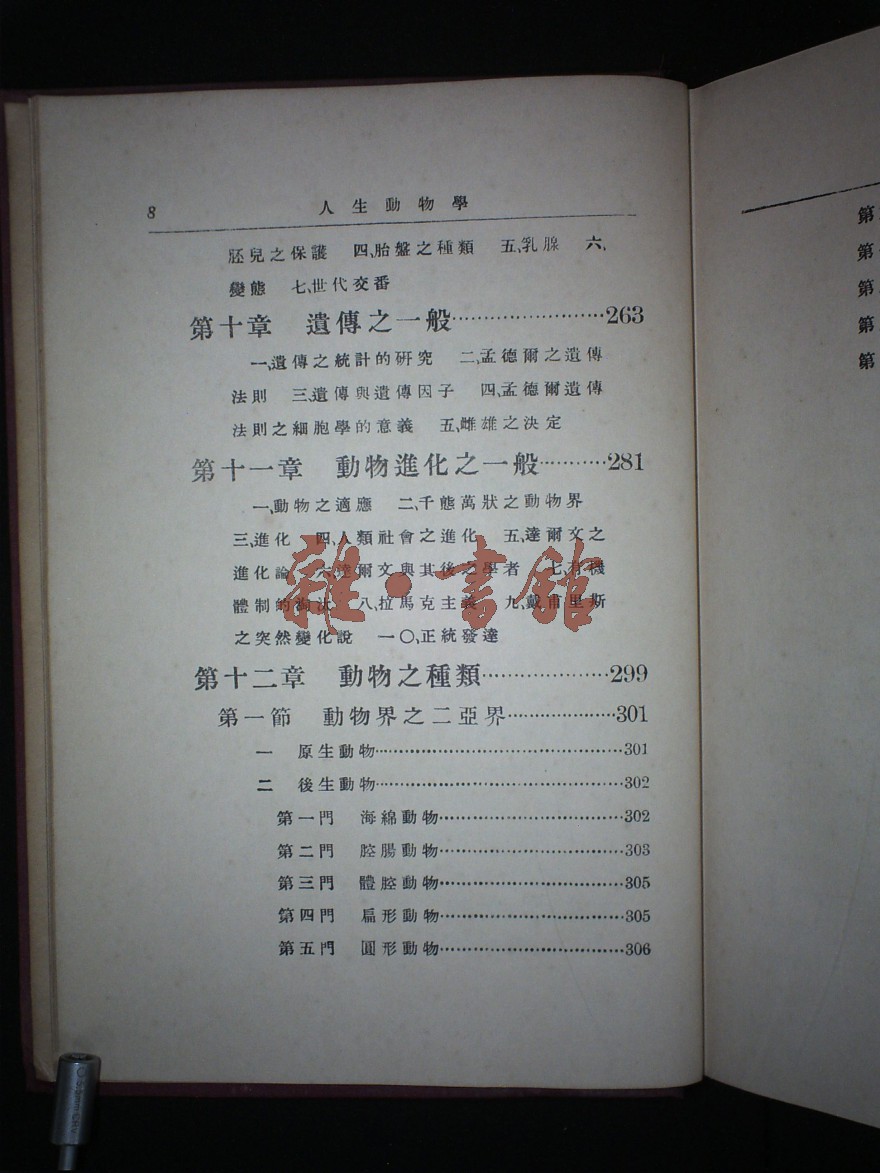 8 人生動物學
胚兒之保護 四、胎盤之種類 五、乳腺 六、
變態 七、世代交番
第十章 遺傳之一般……………………263
一、遺傳之統計的研究 二、孟德爾之遺傳
法則 三、遺傳與遺傳因子 四、孟德爾遺傳
法則之細胞學的意義 五、雌雄之決定
第十一章 動物進化之一般…………281
一、動物之適應 二、千態萬狀之動物界
三、進化 四、人類社會之進化 五、達爾文之
進化論 六、達爾文與其後之學者 七、有機
體制的淘汰 八、拉馬克主義 九、戴甫里斯
之突然變化說 一〇、正統發達
第十二章 動物之種類…………………299
第一節 動物界之二亞界…………………301
一 原生動物……………………………………301
二 後生動物……………………………………302
第一門 海綿動物…………………………302
第二門 腔腸動物…………………………303
第三門 體腔動物…………………………305
第四門 扁形動物…………………………305
第五門 圓形動物…………………………306
雜·書館
第
第
第
第
第
0.5mm